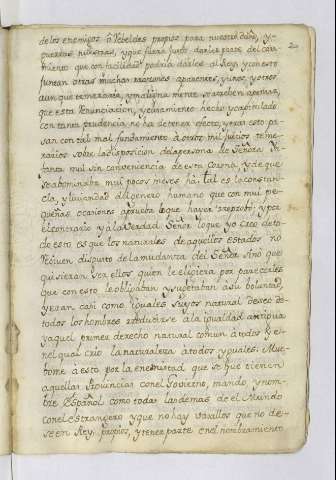 de los enemigos ô Rebeldes propios para nuestro daño, y
puertas nuestras, y que fuera Justo darle parte del cassa
miento que con facilidad podria darle al Rey, y con esto
juntan otras muchas razones aparentes, y unos, y otros
aunque temeraria, y maligna mente, se atreben a juzgar,
que esta Renunciacion, y Juramento hecho y capitulado
con tanta prudencia no ha de tener efecto, y tras esto pa
san con tal mal fundamento à otros mil juicios teme
rarios sobre la disposicion de la persona de Señora In
fanta mui sin conveniencia de esta Corona, y de que
se abominaba mui pocos meses ha, tal es la constan
cia, y liviandad del genero humano que con mui pe
queñas ocasiones aprueba lo que haya reprobado, y por
el contrario y a la Verdad Señor lo que yo creo de to
do esto es que los naturales de aquellos estados no
reciven disgusto de la mudanza del Señor sino que
quisieran ser ellos quien le eligiera por parecerles
que con esto le obligaban y sugetaban a su boluntad,
y eran casi como iguales suyos natural deseo de
todos los hombres reducirse a la igualdad antigua
y aquel primer derecho natural comun à todos, y e
nel qual crio la naturaleza a todos yguales. Mue
bome à esto por la enemistad que se bue tienen
aquellas Provincias con el Govierno, mando, y nom
bre Español como todas las demas de el Mundo
con el estrangero y que no hay vasallos que no de
seen Rey propios, y tener parte en el nombramiento